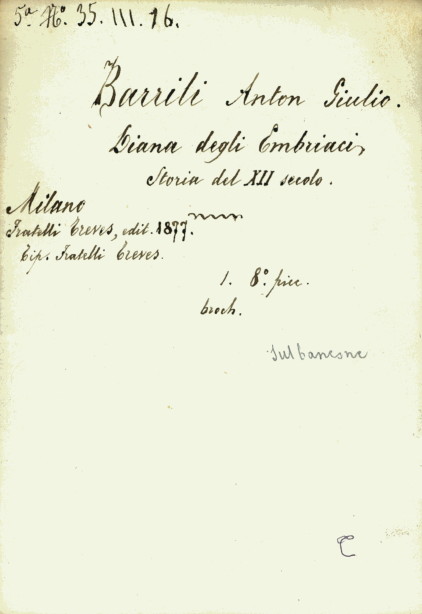 5ª Nº. 35. III. 16.
Barrili Anton Giulio.
Diana degli Embriaci,
Storia del XII secolo.
Milano
Fratelli Treves, edit. 1877.
Tip. Fratelli Treves.
1. 8º. picc.
broch.
Sul bancone